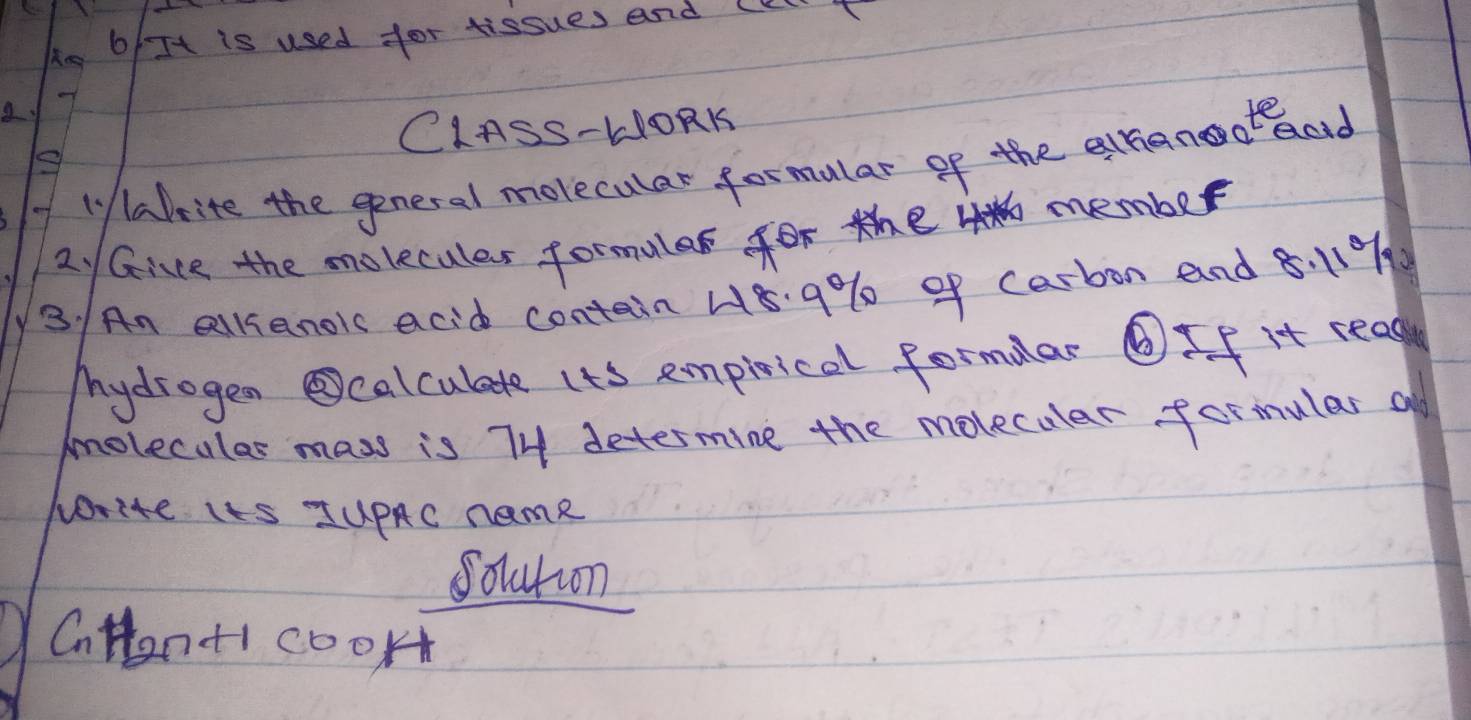 6 It is used for tissues and
CLASS-WORK
1. Write the general molecular formular of the alkanoate acid
2. Give the molecular formular for the 4th member
3. An alkanoic acid contain 48.9% of carbon and 8.11%
hydrogen (a) calculate its empirical formular (b) If it
molecular mass is 74 determine the molecular formular and
write its IUPAC name
Solution
CnH2n+1 COOH